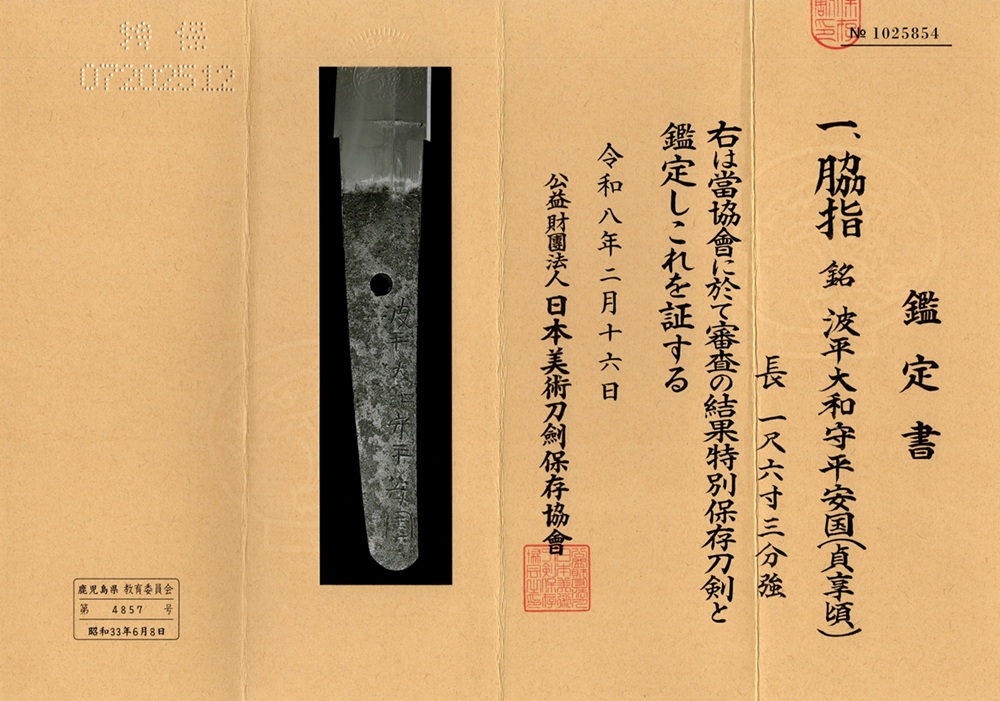 № 1025854
鑑定書
一、脇指 銘 波平大和守平安国(貞享頃)
長 一尺六寸三分強
右は當協會に於て審査の結果特別保存刀剣と
鑑定しこれを証する
令和八年二月十六日
公益財團法人 日本美術刀劍保存協會
波平大和守平安国
特保
07202512
鹿児島県 教育委員会
第 4857 号
昭和33年6月8日